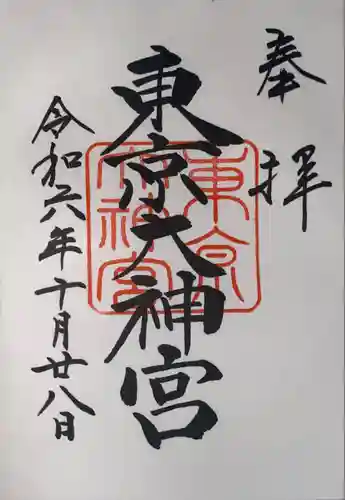 奉拝
東京大神宮
東京大神宮
令和六年十月廿八日